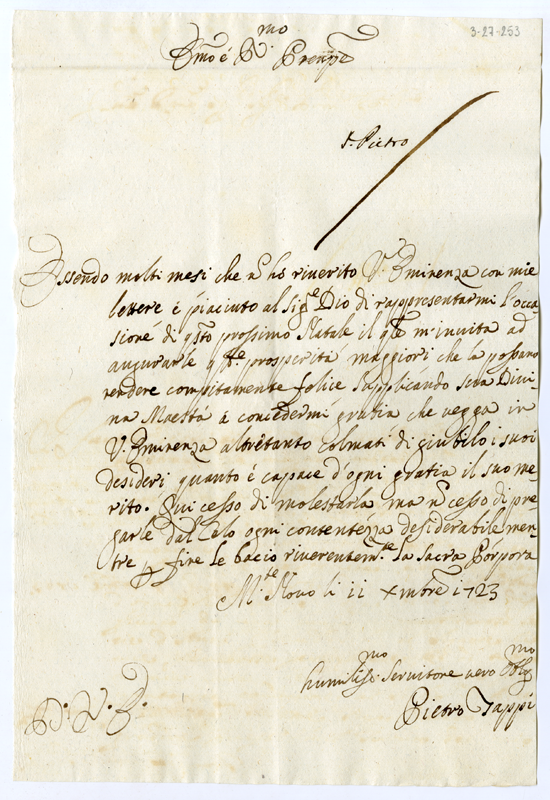 3-27-253
Emo e Rmo Prenpe
S. Pietro
Essendo molti mesi che n hò riverito V. Eminenza con mie
lettere è piaciuto al Sige Dio di rappresentarmi l'occa-
sione di qsto prossimo Natale il qle m'invita ad
augurarle qlle prosperità maggiori che la possano
rendere compitamente felice supplicando sua Divi-
na Maestà à concedermi gratia che vegga in
V. Eminenza altretanto colmati di giubilo i suoi
desideri quanto è capace d'ogni gratia il suo me-
rito. Qui cesso di molestarla ma n cesso di pre-
garle dal Celo ogni contentezza desiderabile men-
tre p fine le bacio riverentemte la sacra Porpora
Mte Novo li 11 Xmbre 1723
D. V. E.
humilissmo Servitore vero Obligmo
Pietro Tappi